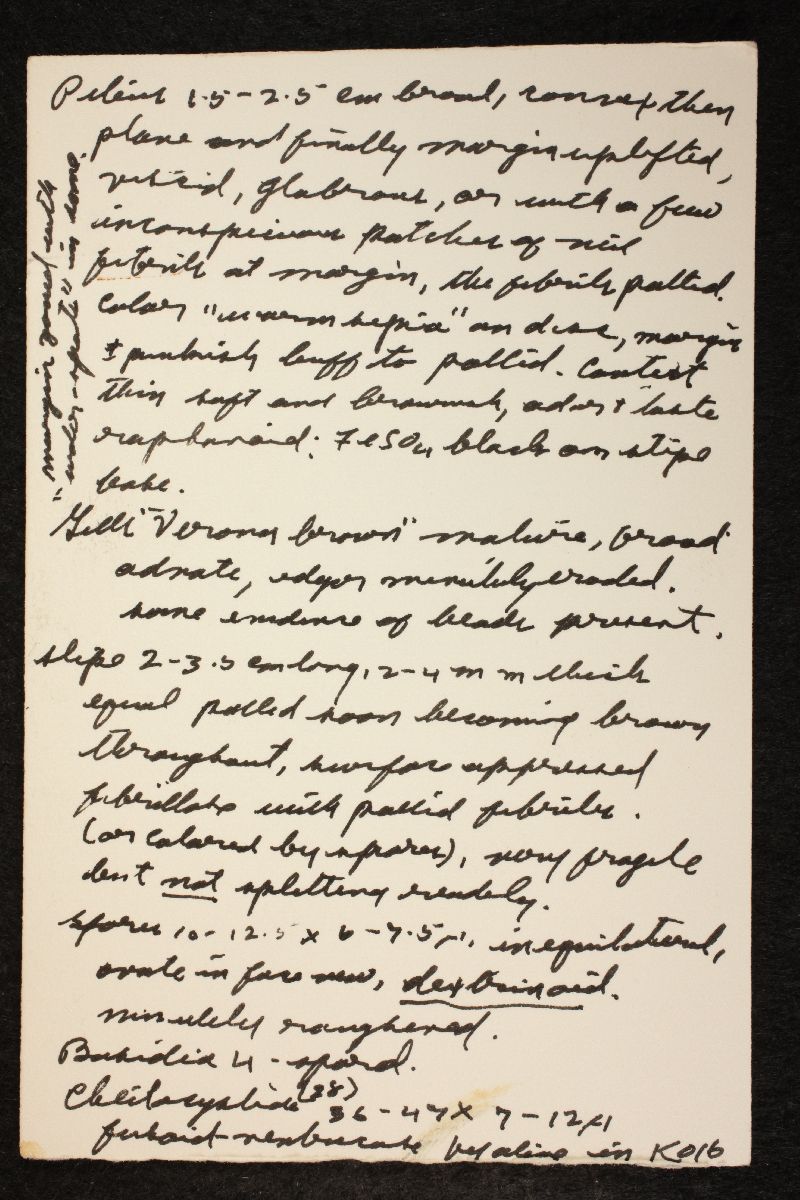 Pileus 1.5-2.5 cm broad, convex then
plane and finally margin uplifted,
viscid, glabrous, or with a few
inconspicuous patches of veil
fibrils at margin, the fibrils pallid.
Color "warm sepia" on disc, margin
± pinkish buff to pallid. Context
thin soft and brownish, odor & taste
raphanoid: FeSO4 black on stipe
base.
Gills "Verona brown" mature, broad
adnate, edges minutely eroded.
some evidence of beads present.
Stipe 2-3.5 cm long, 2-4 mm thick
equal pallid soon becoming brown
throughout, surface appressed
fibrillose with pallid fibrils.
(or colored by spores), very fragile
but not splitting readily.
Spores 10-12.5 x 6-7.5μ, inequilateral,
ovate in face view, dextrinoid.
minutely roughened.
Basidia 4-spored.
Cheilocystidia (28) 36-47 x 7-12μ
fusoid-ventricose hyaline in KOH